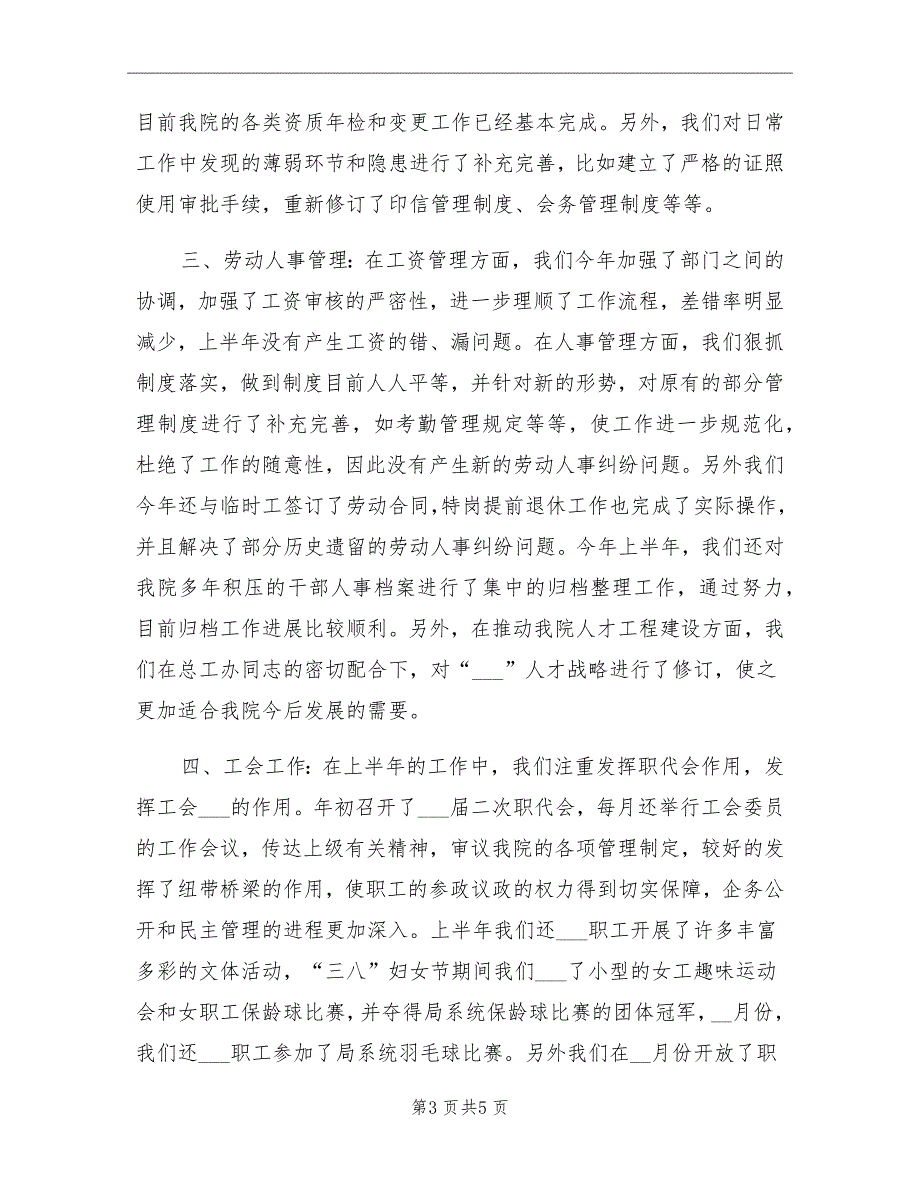 目前我院的各类资质年检和变更工作已经基本完成。另外，我们对日常
工作中发现的薄弱环节和隐患进行了补充完善，比如建立了严格的证照
使用审批手续，重新修订了印信管理制度、会务管理制度等等。
三、劳动人事管理：在工资管理方面，我们今年加强了部门之间的
协调，加强了工资审核的严密性，进一步理顺了工作流程，差错率明显
减少，上半年没有产生工资的错、漏问题。在人事管理方面，我们狠抓
制度落实，做到制度目前人人平等，并针对新的形势，对原有的部分管
理制度进行了补充完善，如考勤管理规定等等，使工作进一步规范化，
杜绝了工作的随意性，因此没有产生新的劳动人事纠纷问题。另外我们
今年还与临时工签订了劳动合同，特岗提前退休工作也完成了实际操作，
并且解决了部分历史遗留的劳动人事纠纷问题。今年上半年，我们还对
我院多年积压的干部人事档案进行了集中的归档整理工作，通过努力，
目前归档工作进展比较顺利。另外，在推动我院人才工程建设方面，我
们在总工办同志的密切配合下，对“___”人才战略进行了修订，使之
更加适合我院今后发展的需要。
四、工会工作：在上半年的工作中，我们注重发挥职代会作用，发
挥工会___的作用。年初召开了___届二次职代会，每月还举行工会委员
的工作会议，传达上级有关精神，审议我院的各项管理制定，较好的发
挥了纽带桥梁的作用，使职工的参政议政的权力得到切实保障，企务公
开和民主管理的进程更加深入。上半年我们还___职工开展了许多丰富
多彩的文体活动，“三八”妇女节期间我们___了小型的女工趣味运动
会和女职工保龄球比赛，并夺得局系统保龄球比赛的团体冠军，__月份，
我们还___职工参加了局系统羽毛球比赛。另外我们在__月份开放了职
第3 页共5 页